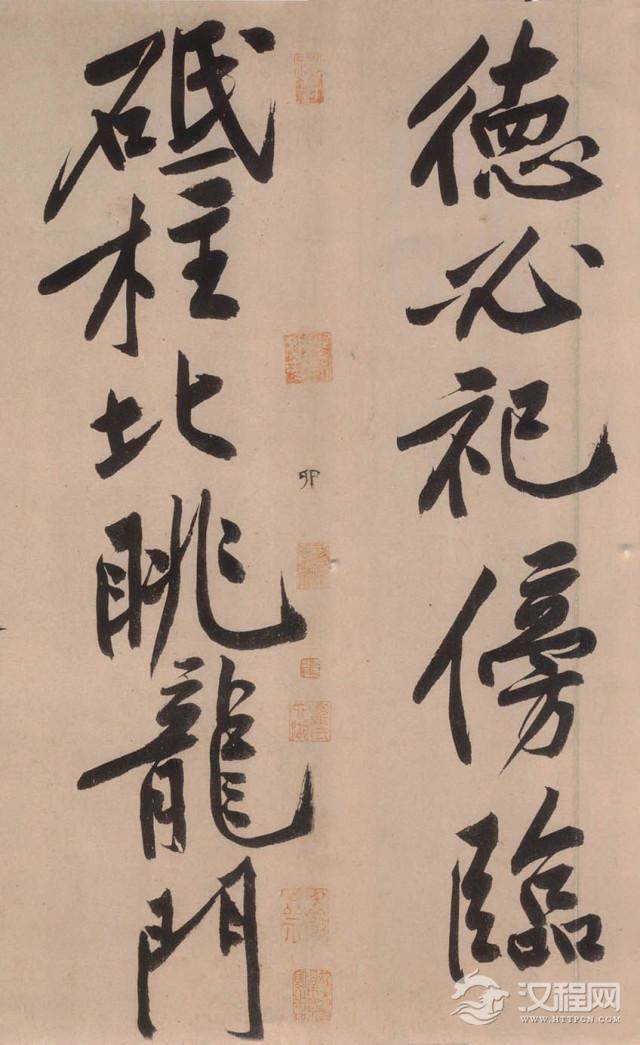 德必祀傍臨
卯
砥柱北眺龍門
汉程网
WWW.HTTPCN.COM